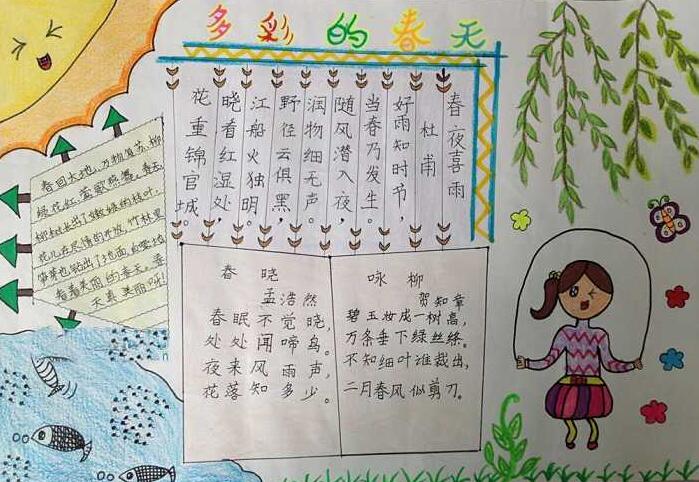 多彩的春天
春夜喜雨
杜甫
好雨知时节，
当春乃发生。
随风潜入夜，
润物细无声。
野径云俱黑，
江船火独明。
晓看红湿处，
花重锦官城。
春回大地，万物复苏，柳
绿花红，莺歌燕舞，春天，
柳树长出了嫩绿的枝叶，
花儿在尽情的开放，竹林里
笋芽也钻出了地面，
看看美丽的春天，春
天真美丽呀！
春晓
孟浩然
春眠不觉晓，
处处闻啼鸟。
夜来风雨声，
花落知多少。
咏柳
贺知章
碧玉妆成一树高，
万条垂下绿丝绦。
不知细叶谁裁出，
二月春风似剪刀。